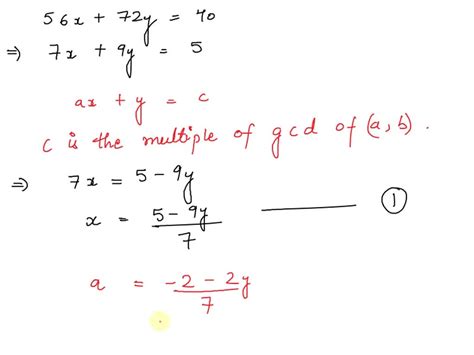 56x + 72y = 40
⇒ 7x + 9y = 5
ax + y = c
c is the multiple of gcd of (a, b).
⇒ 7x = 5 - 9y
x = (5 - 9y)/7 ——— ①
a = (-2 - 2y)/7